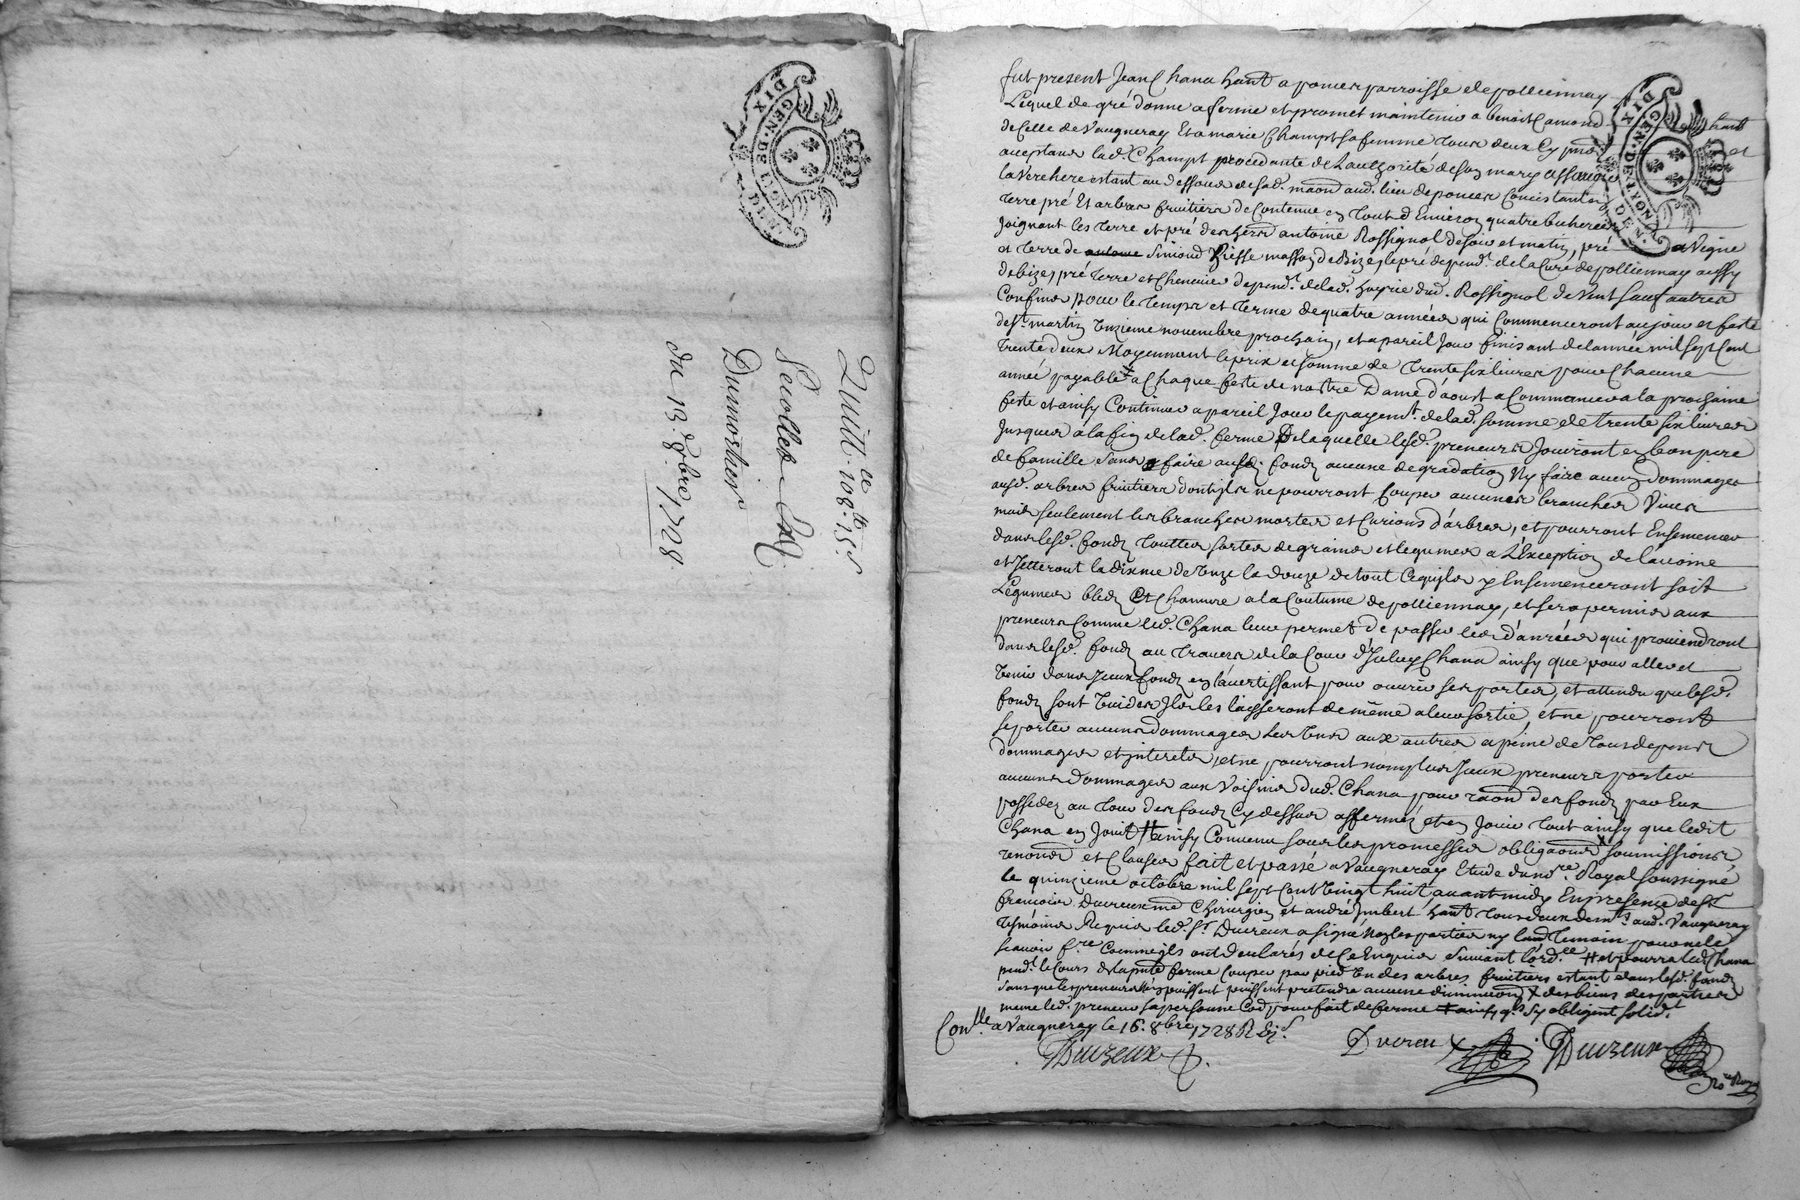 GEN. DE LYON
DIX DEN.
Quitt.ce 108.lt 15.s
Secollet
Dumortier
du 13. 8bre 1728
fut present Jean Chana habt a poncer parroisse de pollionnay
Lequel de gré donne a ferme et promet maintenir a benoit Camond habt
de Celle de Vaugneray Et a marie Champt sa femme tous deux Cy pnts et
aceptans lad. Champt procedante de L'authorité de son mary assavoir
la Verchere estant au dessous de sad. maon aud. lieu de poncer Concistant en
terre pré Et arbres fruitiers de Contenue en tout d'Environ quatre bicherées
Joignant les terre et pré des hers antoine Rossignol de soir et matin, pré et Vigne
et terre de antoine Simond Griffe masson de Bize, le pré depend.t de la Cure de pollionnay aussy
de bize, pré terre et Cheneuie depend.t de lad. hoyrie dud. Rossignol de Vent sauf autres
Confins pour le temps et terme de quatre années qui Commenceront au jour et feste
de St. martin Unzieme novembre prochain, et a pareil Jour finissant de l'année mil sept Cent
trente deux Moyennent le prix et somme de trente six livres pour Chacune
année payable a Chaque feste de nostre Dame d'aoust a Commancer a la prochaine
feste et ainsy Continuer a pareil Jour le payem.t de lad. somme de trente six livres
Jusques a la fin de lad. ferme De laquelle lesd. preneurs Jouiront en bon pere
de famille sans faire ausd. fonds aucune degradation Ny faire aucun dommages
ausd. arbres fruitiers dont ils ne pourront Couper aucunes branches Vives
mais seulement les branches mortes et Curions d'arbres, et pourront Ensemencer
dans lesd. fonds touttes sortes de grains et legumes a L'Exception de l'avoine
et Jetteront la dixme de Unze la douze de tout Ce qu'ils y Ensemenceront soit
Legumes bleds et Chanvre a la Coutume de pollionnay, et sera permis aux
preneurs Comme led. Chana leur permet de passer les d'anrées qui proviendront
dans lesd. fonds au travers de la Cour d'Iceluy Chana ainsy que pour aller et
Venir dans Iceux fonds en l'avertissant pour ouvrir ses portes, et attendu que lesd.
fonds sont Vuides Ils les laisseront de même a leur sortie, et ne pourront
se porter aucuns dommages Les Uns aux autres a peine de tous depens
dommages et interets, et ne pourront non plus Iceux preneurs porter
aucuns dommages aux Voisins dud. Chana pour raon des fonds par Eux
possedez au tour des fonds Cy dessus affermés et en Jouir tout ainsy que ledit
Chana en Jouit # ainsy Convenu sous les promesses obligaons soumissions
renons et Clauses fait et passé a Vaugneray Etude du nore. Royal soussigné
le quinzieme octobre mil sept Cent Vingt huit avant midy En presence de Sr.
francois Ducreux me Chirurgien et andré Imbert habt tous deux demts aud. Vaugneray
temoins Requis led. Sr Ducreux a signé Non les parties ny l'autre temoin pour ne le
scavoir f.re Comme ils ont declarés de Ce Enquis Suivant l'ord.ce # et pourra led. Chana
pend.t le Cours de la pnte ferme Couper par pied Un des arbres fruitiers estant dans lesd. fonds
sans que les preneurs puissent pretendre aucune diminuon X des biens des parties
meme led. preneur sa personne Cod. pour fait de ferme ainsy qu'ils s'y obligent solid.t
Conlle a Vaugneray le 16. 8bre 1728 R Six s.
Ducreux
Ducreux
Ducreux
no.re Royal